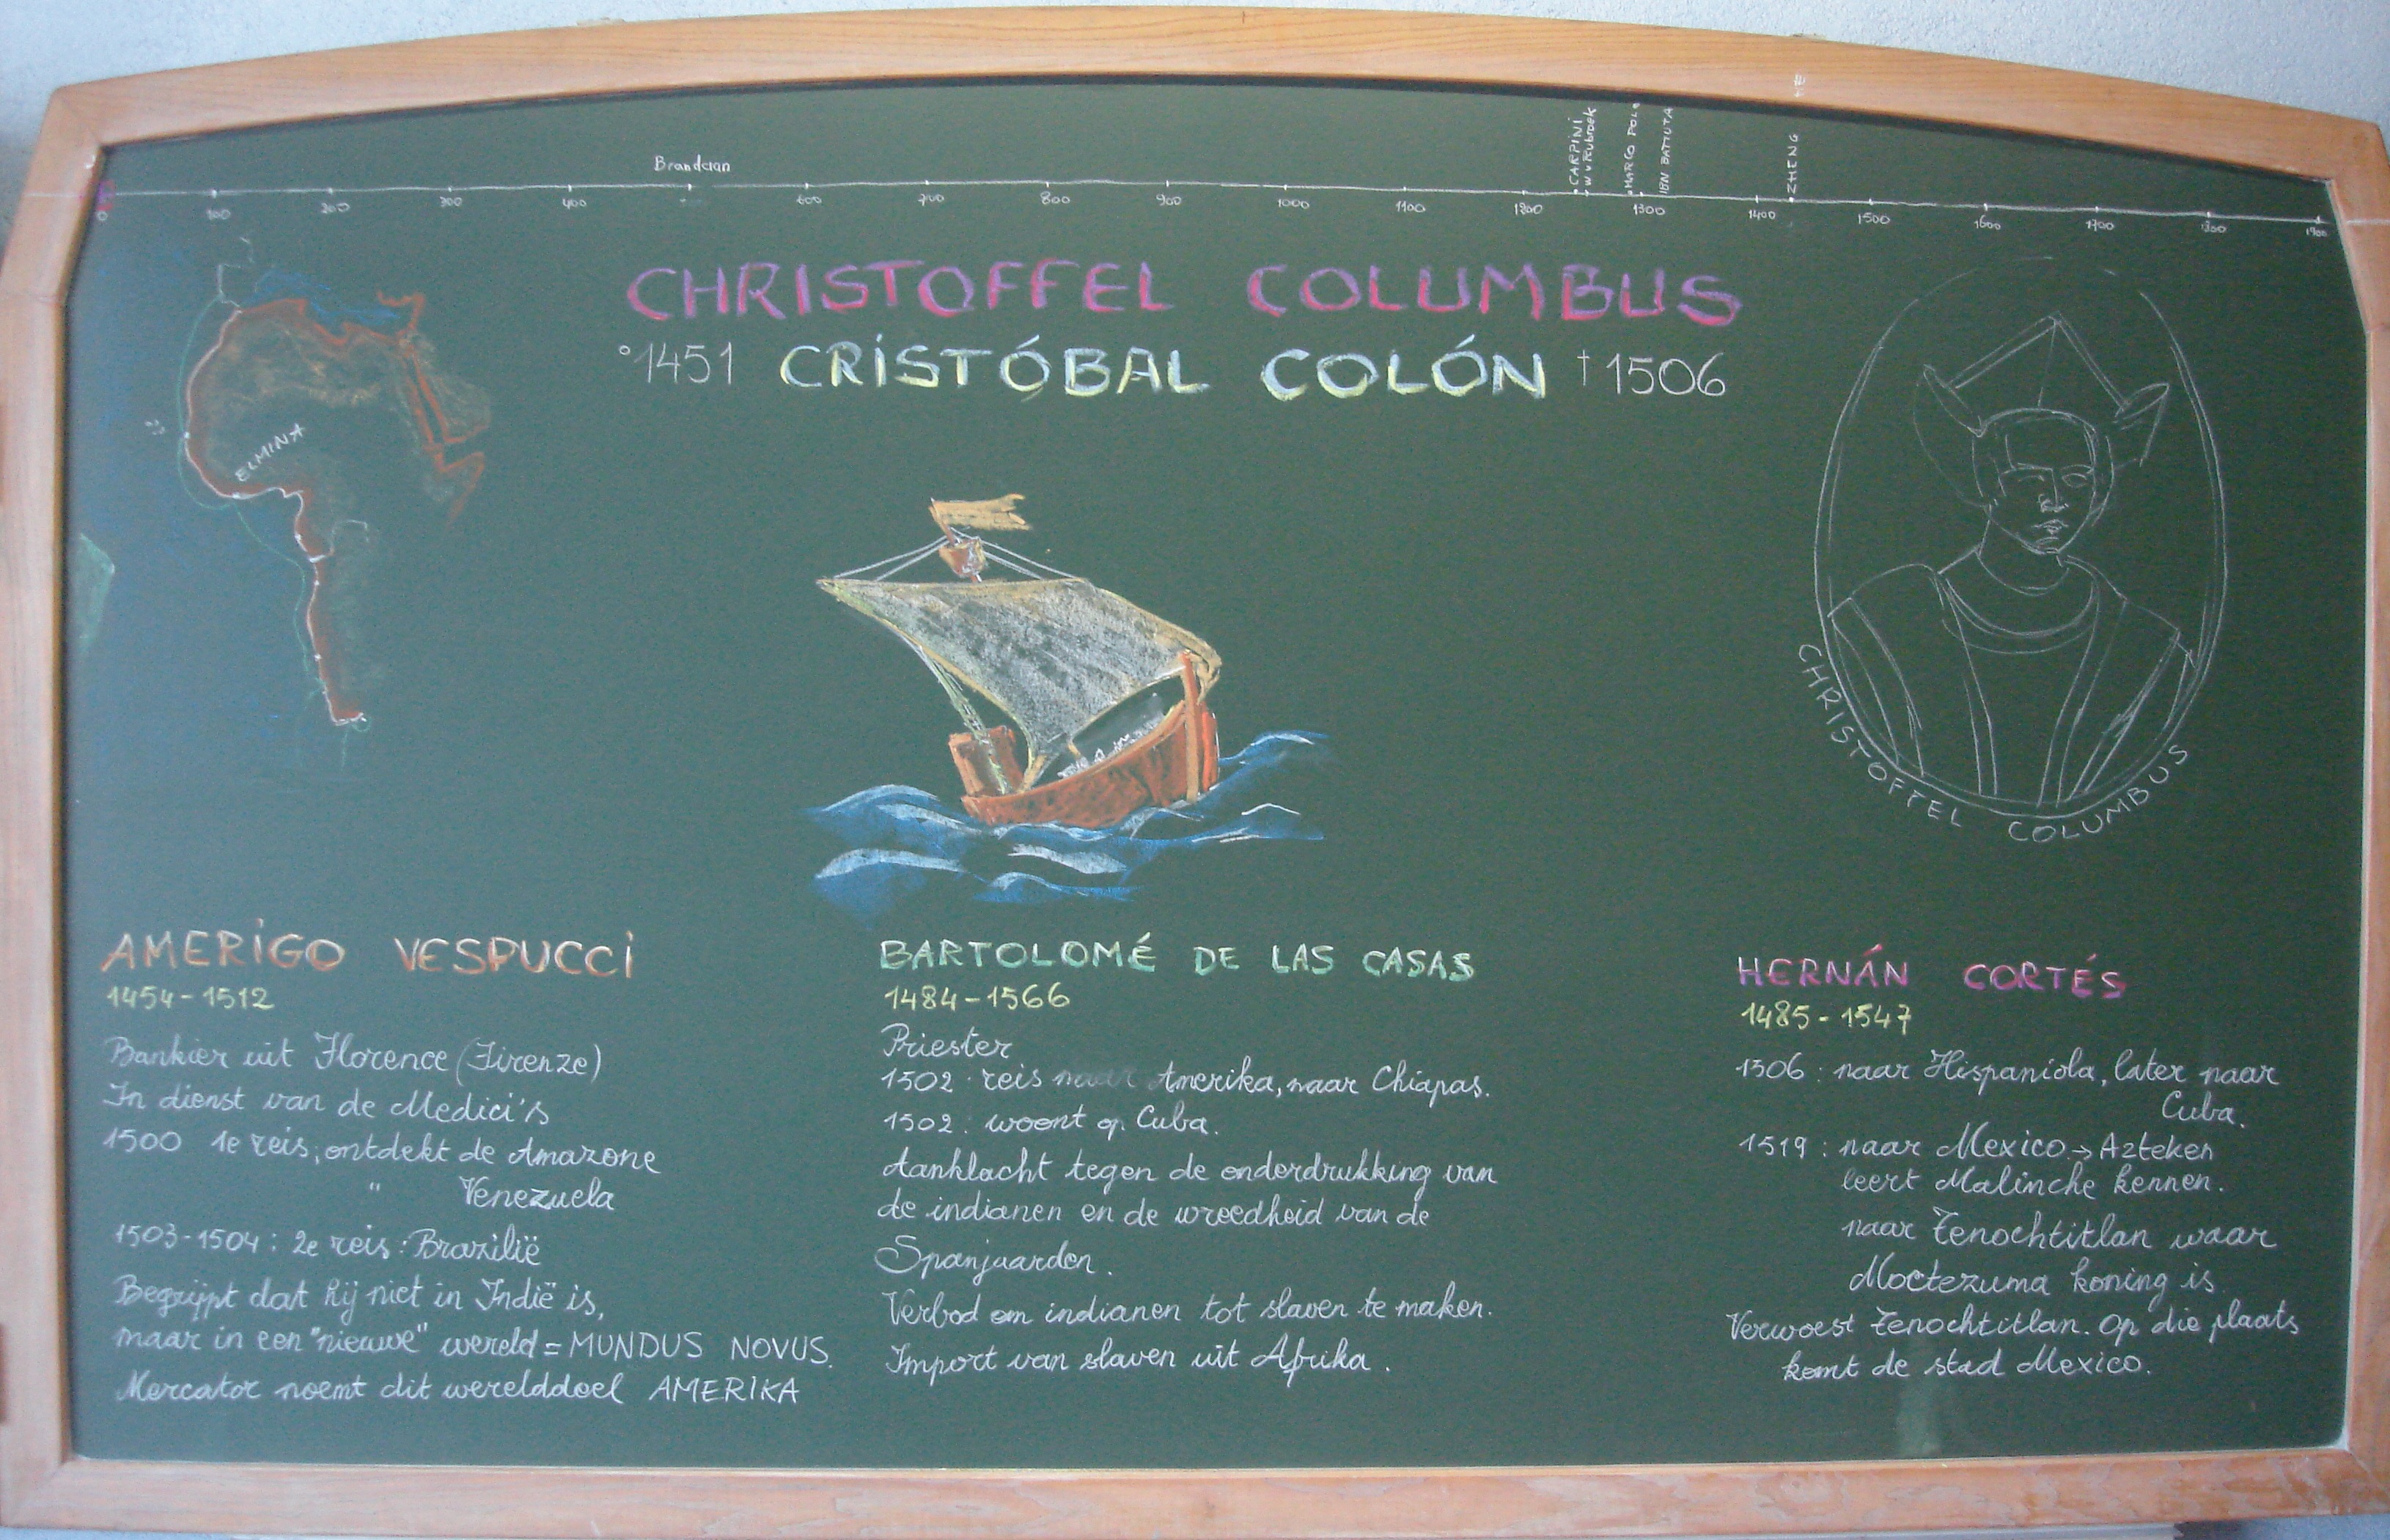 Brandaan
CARPINI
W v Rubroek
MARCO POLO
IBN BATTUTA
ZHENG HE
0 100 200 300 400 600 700 800 900 1000 1100 1200 1300 1400 1500 1600 1700 1800 1900
CHRISTOFFEL COLUMBUS
°1451 CRISTÓBAL COLÓN †1506
ELMINA
CHRISTOFFEL COLUMBUS
AMERIGO VESPUCCI
1454-1512
Bankier uit Florence (Firenze)
In dienst van de Medici's
1500 1e reis; ontdekt de Amazone
" Venezuela
1503-1504: 2e reis: Brazilië
Begrijpt dat hij niet in Indië is,
maar in een "nieuwe" wereld = MUNDUS NOVUS.
Mercator noemt dit werelddeel AMERIKA
BARTOLOMÉ DE LAS CASAS
1484-1566
Priester
1502 reis naar Amerika, naar Chiapas.
1502: woont op Cuba.
Aanklacht tegen de onderdrukking van
de indianen en de wreedheid van de
Spanjaarden.
Verbod om indianen tot slaven te maken.
Import van slaven uit Afrika.
HERNÁN CORTÉS
1485-1547
1506: naar Hispaniola, later naar
Cuba.
1519: naar Mexico → Azteken
leert Malinche kennen.
naar Tenochtitlan waar
Moctezuma koning is
Verwoest Tenochtitlan. Op die plaats
komt de stad Mexico.